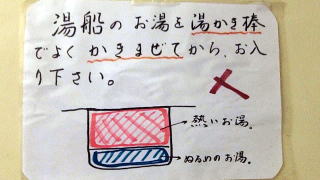 湯船のお湯を湯かき棒
でよくかきまぜてから、お入
り下さい。
熱いお湯。
ぬるめのお湯。